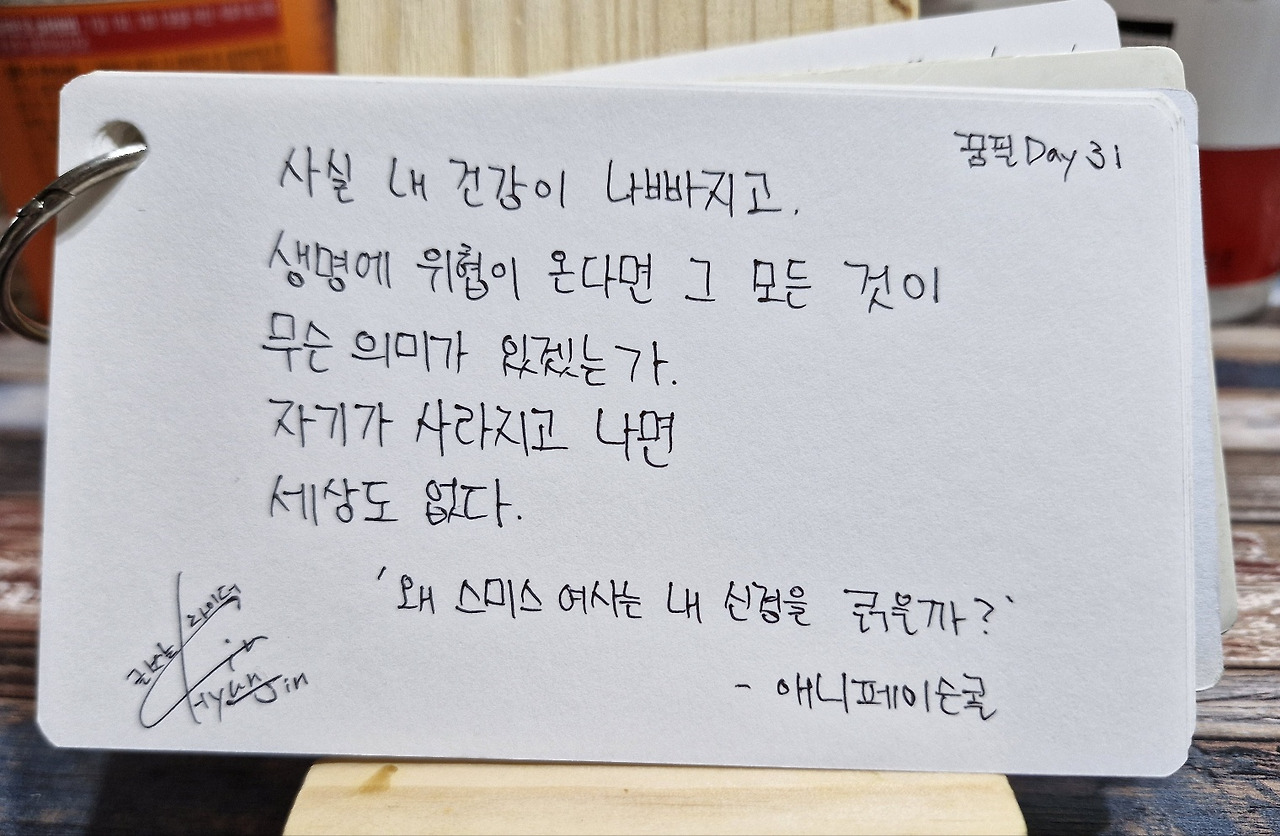 꿈필 Day 31
사실 내 건강이 나빠지고,
생명에 위협이 온다면 그 모든 것이
무슨 의미가 있겠는가.
자기가 사라지고 나면
세상도 없다.
'왜 스미스 여사는 내 신경을 긁을까?'
- 애니페이슨콜
라이덕
Hyunjin